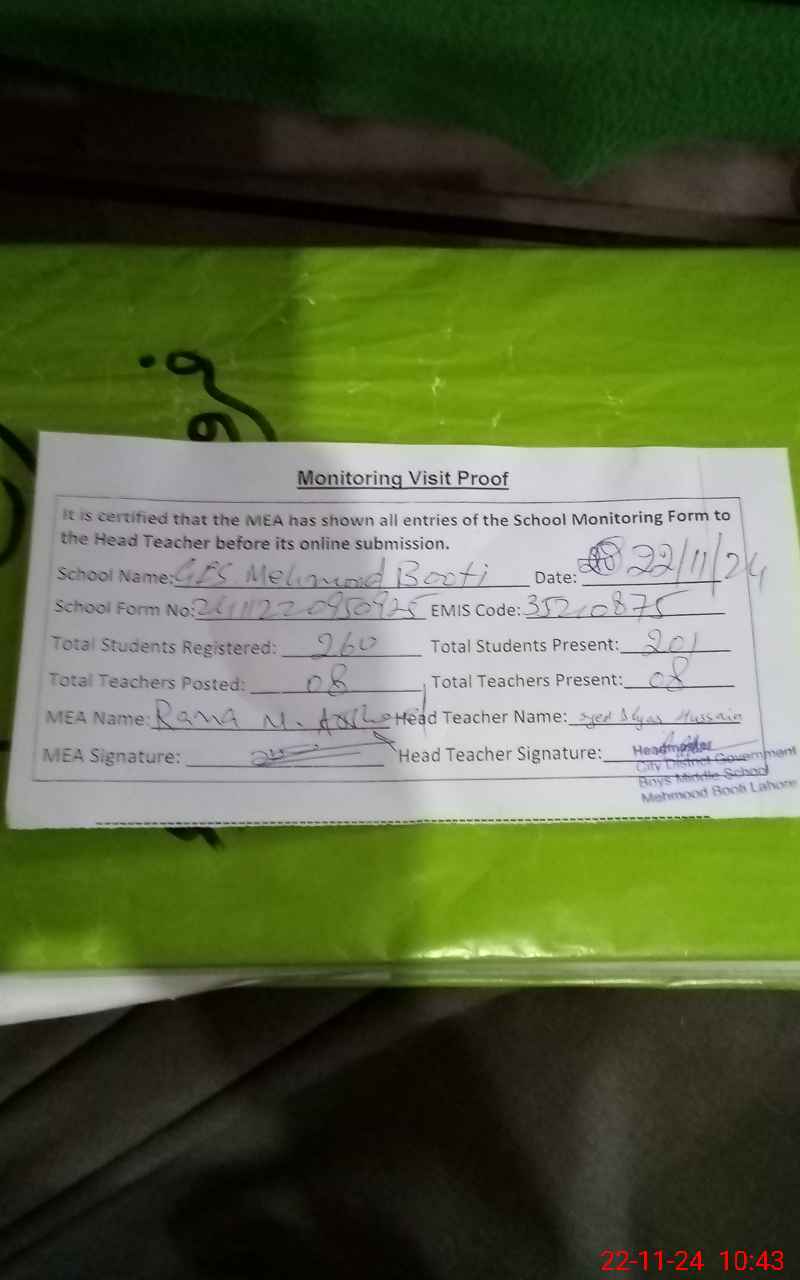 Monitoring Visit Proof
It is certified that the MEA has shown all entries of the School Monitoring Form to
the Head Teacher before its online submission.
School Name: GES Mehmood Booti Date: 22/11/24
School Form No: EMIS Code: 35210875
Total Students Registered: 260 Total Students Present: 201
Total Teachers Posted: 08 Total Teachers Present: 08
MEA Name: Rana M. Head Teacher Name: Syed Ilyas Hussain
MEA Signature: Head Teacher Signature:
Headmaster
City District Government
Boys Middle School
Mehmood Booti Lahore
22-11-24 10:43